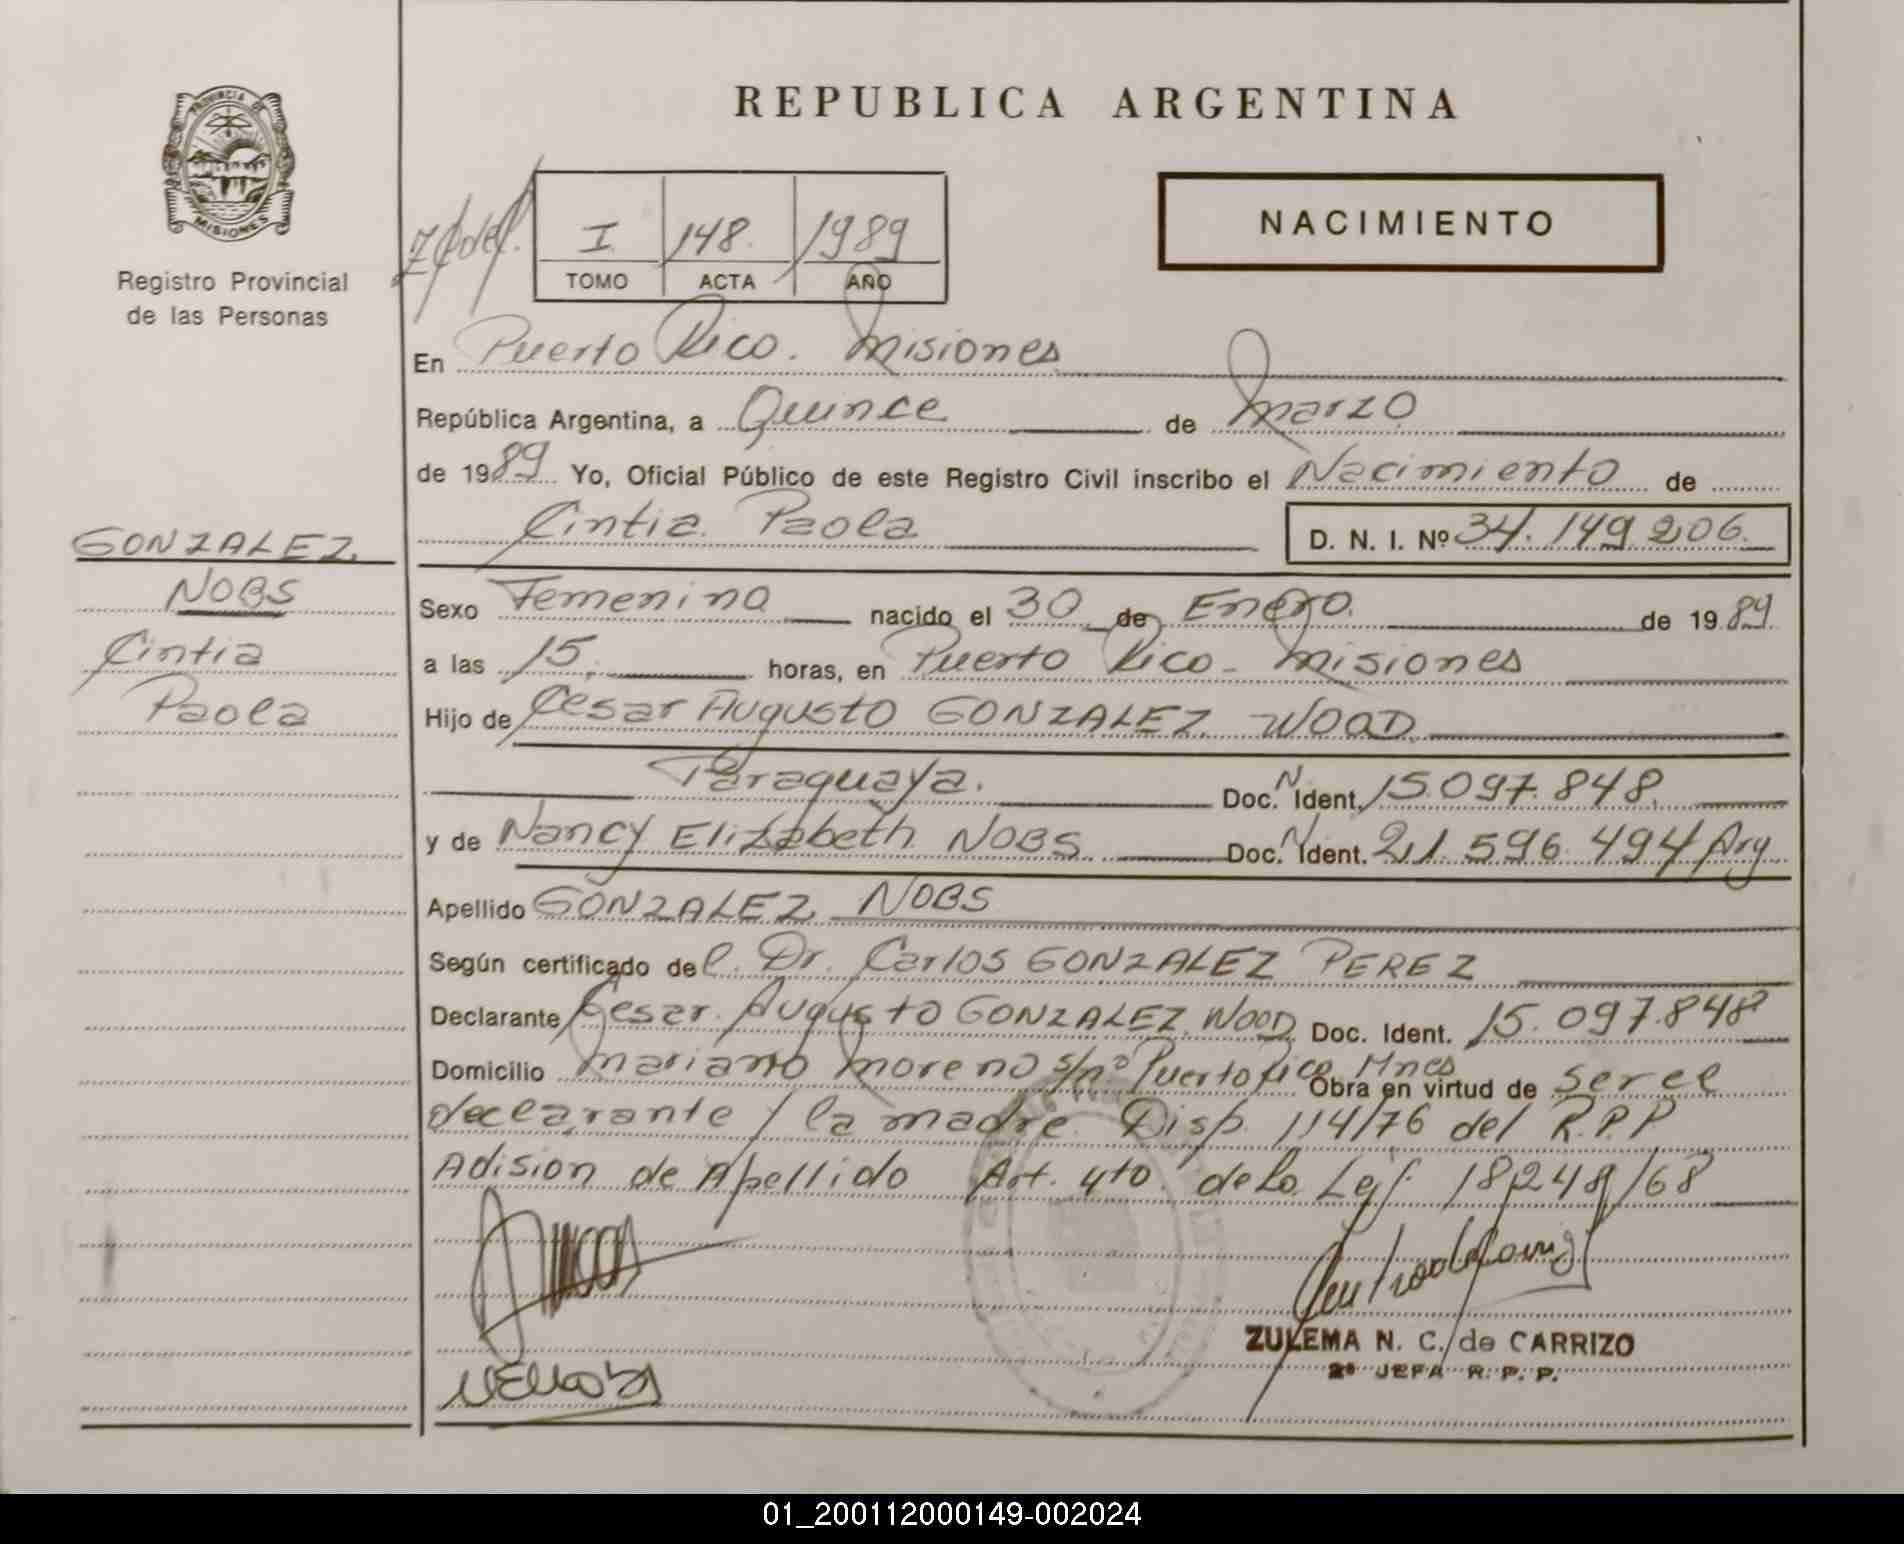 REPUBLICA ARGENTINA
PROVINCIA DE
MISIONES
Registro Provincial
de las Personas
I 148. 1989
TOMO ACTA AÑO
NACIMIENTO
En Puerto Rico. Misiones
República Argentina, a Quince de Marzo
de 1989 Yo, Oficial Público de este Registro Civil inscribo el Nacimiento de
Cintia Paola D. N. I. Nº 34.149.206.
GONZALEZ
NOBS
Cintia
Paola
Sexo Femenino nacido el 30 de Enero. de 1989
a las 15. horas, en Puerto Rico - Misiones
Hijo de Cesar Augusto GONZALEZ WOOD
Paraguaya. Doc. N Ident. 15.097.848.
y de Nancy Elizabeth NOBS Doc. N Ident. 21.596.494 Arg
Apellido GONZALEZ NOBS
Según certificado del. Dr. Carlos GONZALEZ PEREZ
Declarante Cesar Augusto GONZALEZ WOOD Doc. Ident. 15.097.848
Domicilio Mariano Moreno s/nº Puerto Rico Mnes Obra en virtud de ser el
declarante / la madre Disp. 114/76 del R.P.P
Adision de Apellido Art. 4to. de La Ley 18.248/68
ZULEMA N. C. de CARRIZO
2ª JEFA R. P. P.
01_200112000149-002024